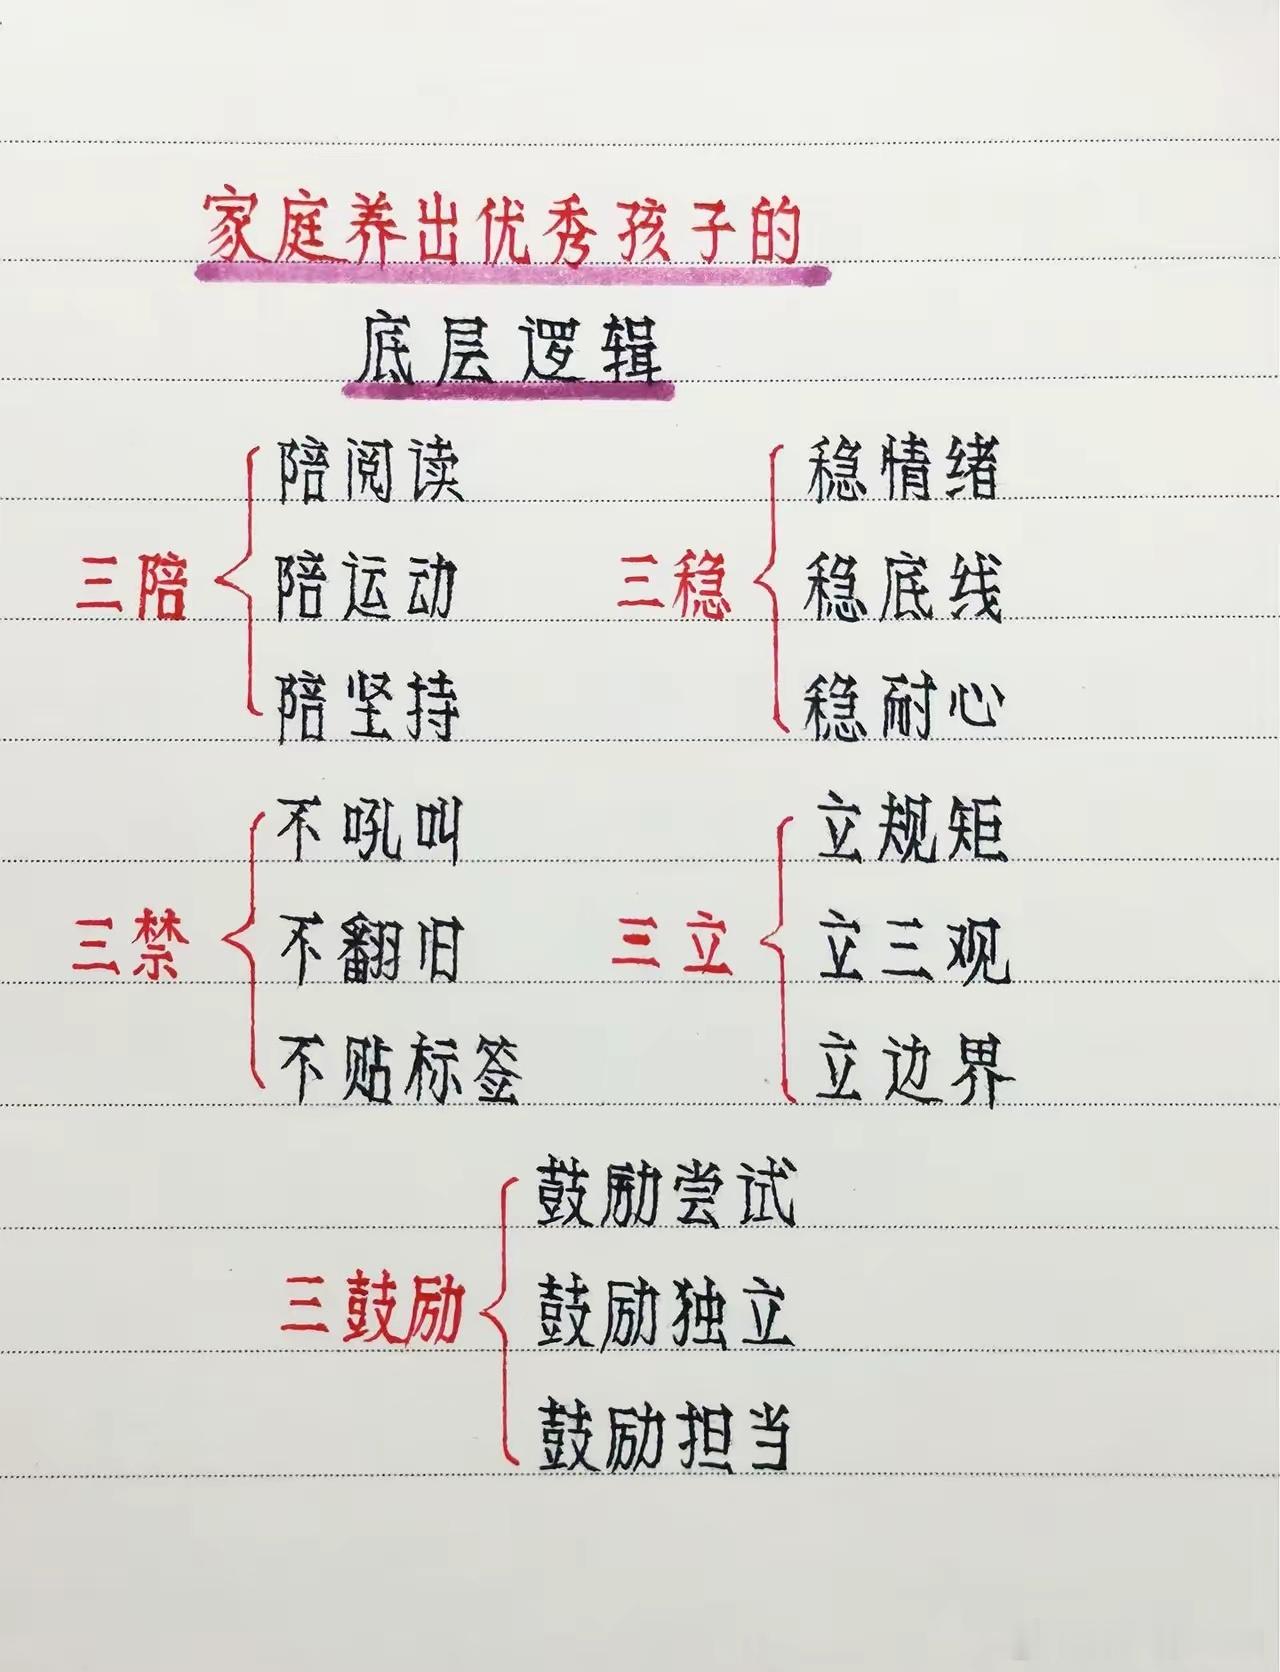 家庭养出优秀孩子的
底层逻辑
三陪
陪阅读
陪运动
陪坚持
三稳
稳情绪
稳底线
稳耐心
三禁
不吼叫
不翻旧
不贴标签
三立
立规矩
立三观
立边界
三鼓励
鼓励尝试
鼓励独立
鼓励担当